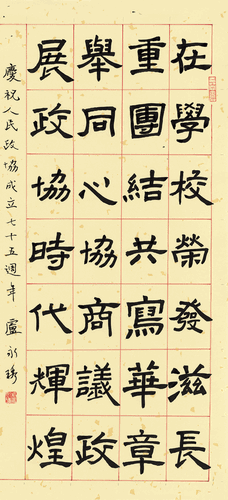 在學校榮發滋長
重團結共寫華章
舉同心協商議政
展政協時代輝煌
慶祝人民政協成立七十五週年 盧永